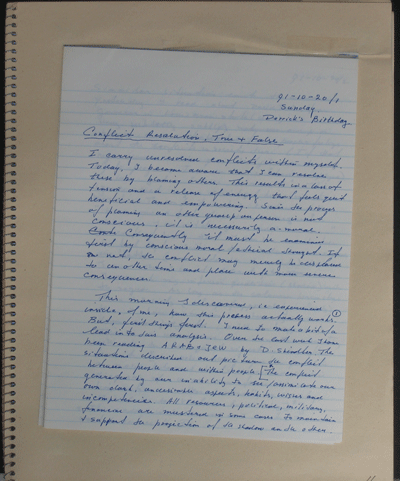 91-10-20/1
Sunday
Derrick's Birthday
Conflict Resolution, True & False
I carry unresolved conflicts within myself.
Today, I became aware that I can resolve
these by blaming others. This results in a loss of
and a release of energy that feels good
beneficial and empowering. Since the process
of blaming an other group or person is not
conscious, it is necessarily a-moral.
Consequently it must be examined
by conscious moral/ethical thought. If
not, the conflict may merely be displaced
to another time and place with more severe
consequences.
This morning I discovered, in experience
inside, of me, how this process actually works. 1
But, first things first. I need to make a bit of a
lead in to this analysis. Over the last week I have
been reading ARAB & JEW, by D. Shipler. The
situations described out picture the conflict
between people and within people. The conflict
generated by our inability to see/ with our
own dark, unacceptable aspects, habits, wishes and
incompetencies. All resources, political, military,
financial are mustered in some cases to maintain
& support the projection of the shadow on the other.
11